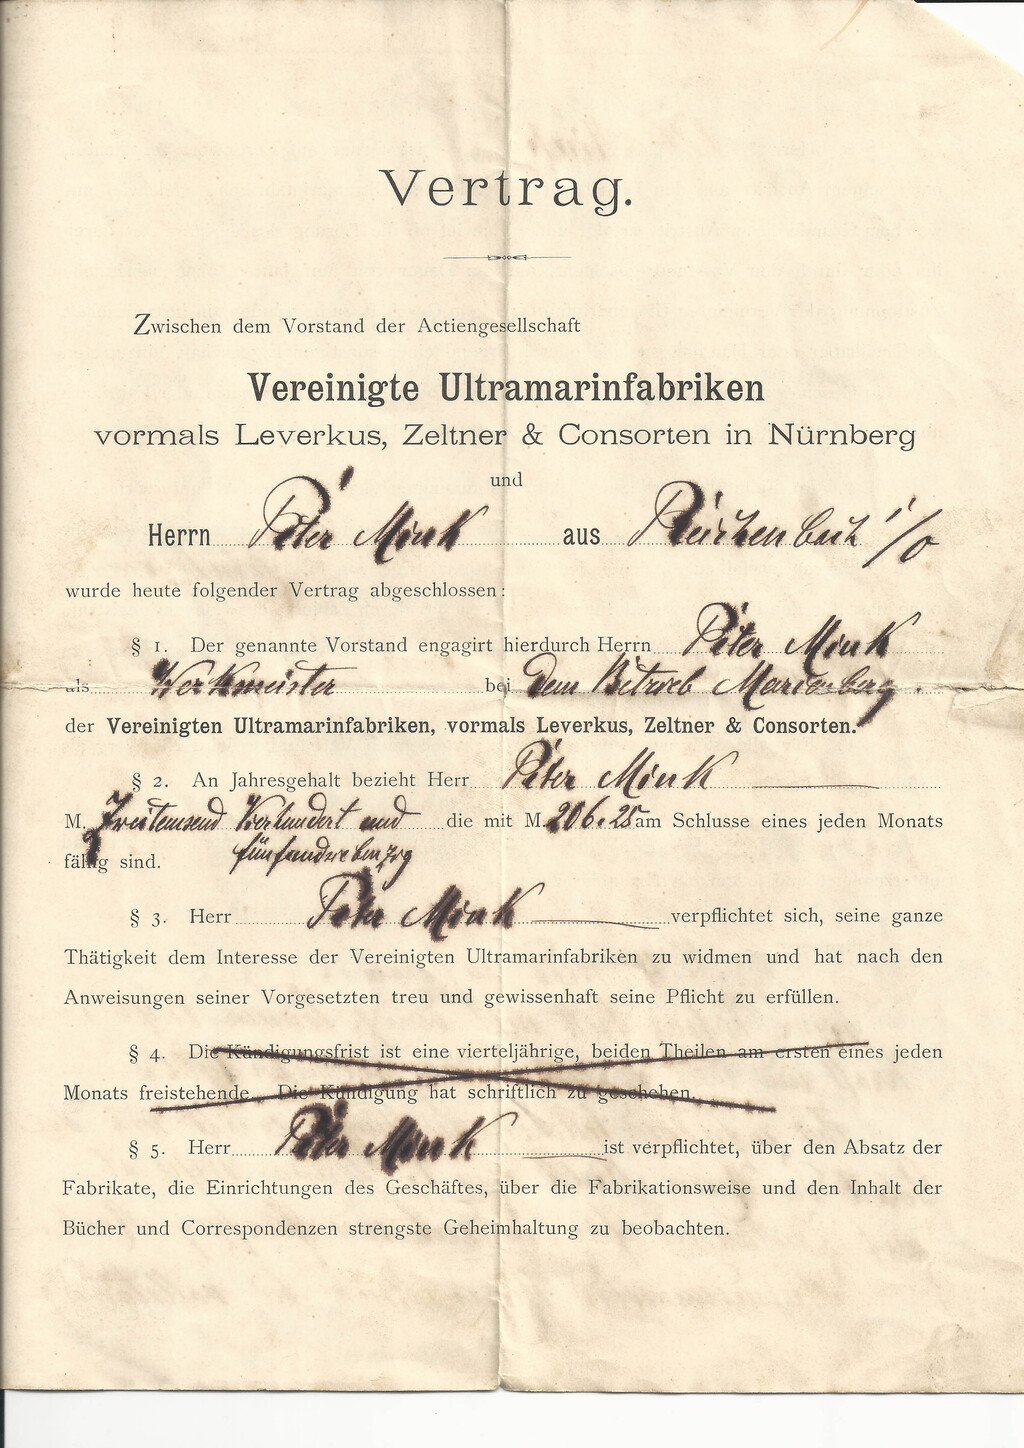 Vertrag.
Zwischen dem Vorstand der Actiengesellschaft
Vereinigte Ultramarinfabriken
vormals Leverkus, Zeltner & Consorten in Nürnberg
und
Herrn Peter Mink aus Reichenbach i/O
wurde heute folgender Vertrag abgeschlossen:
§ 1. Der genannte Vorstand engagirt hierdurch Herrn Peter Mink
als Werkmeister bei dem Betrieb Marienberg.
der Vereinigten Ultramarinfabriken, vormals Leverkus, Zeltner & Consorten.
§ 2. An Jahresgehalt bezieht Herr Peter Mink
M. Zweitausend Vierhundert und die mit M. 206.25 am Schlusse eines jeden Monats
fällig sind. fünfundsiebenzig
§ 3. Herr Peter Mink verpflichtet sich, seine ganze
Thätigkeit dem Interesse der Vereinigten Ultramarinfabriken zu widmen und hat nach den
Anweisungen seiner Vorgesetzten treu und gewissenhaft seine Pflicht zu erfüllen.
§ 4. Die Kündigungsfrist ist eine vierteljährige, beiden Theilen am ersten eines jeden
Monats freistehende. Die Kündigung hat schriftlich zu geschehen.
§ 5. Herr Peter Mink ist verpflichtet, über den Absatz der
Fabrikate, die Einrichtungen des Geschäftes, über die Fabrikationsweise und den Inhalt der
Bücher und Correspondenzen strengste Geheimhaltung zu beobachten.